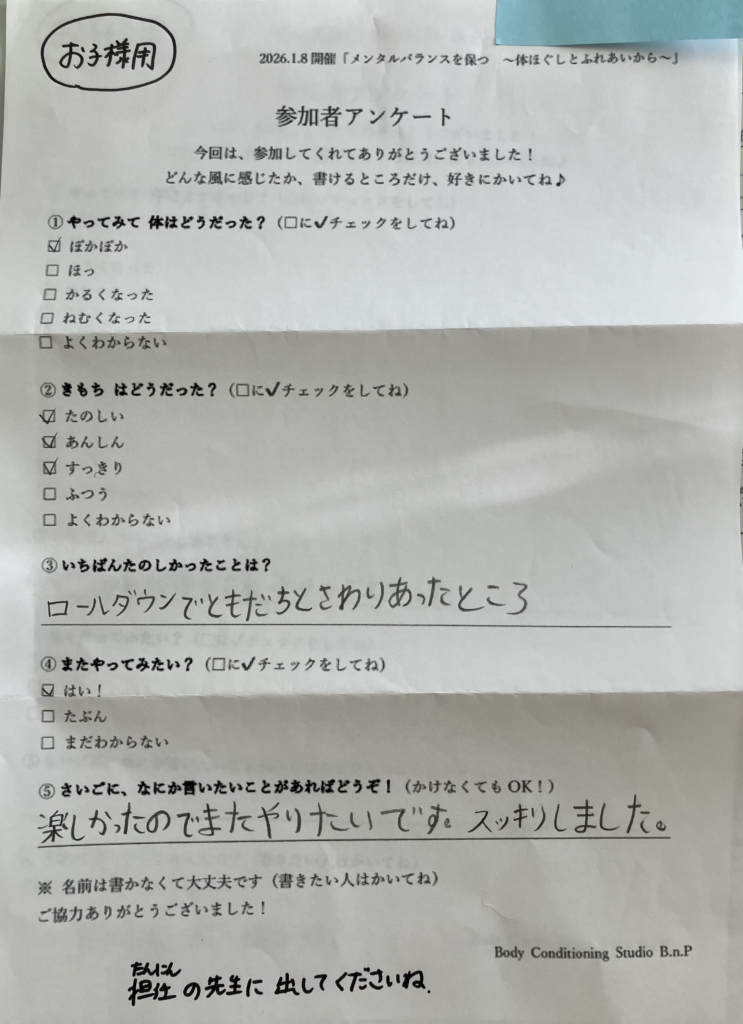 お子様用
2026.1.8 開催「メンタルバランスを保つ　～体ほぐしとふれあいから～」
参加者アンケート
今回は、参加してくれてありがとうございました！
どんな風に感じたか、書けるところだけ、好きにかいてね♪
① やってみて 体はどうだった？（□に✔チェックをしてね）
☑ ぽかぽか
□ ほっ
□ かるくなった
□ ねむくなった
□ よくわからない
② きもち はどうだった？（□に✔チェックをしてね）
☑ たのしい
☑ あんしん
☑ すっきり
□ ふつう
□ よくわからない
③ いちばんたのしかったことは？
ロールダウンでともだちとさわりあったところ
④ またやってみたい？（□に✔チェックをしてね）
☑ はい！
□ たぶん
□ まだわからない
⑤ さいごに、なにか言いたいことがあればどうぞ！（かけなくても OK！）
楽しかったのでまたやりたいです。スッキリしました。
※ 名前は書かなくて大丈夫です（書きたい人はかいてね）
ご協力ありがとうございました！
Body Conditioning Studio B.n.P
たんにん
担任の先生に 出してくださいね.